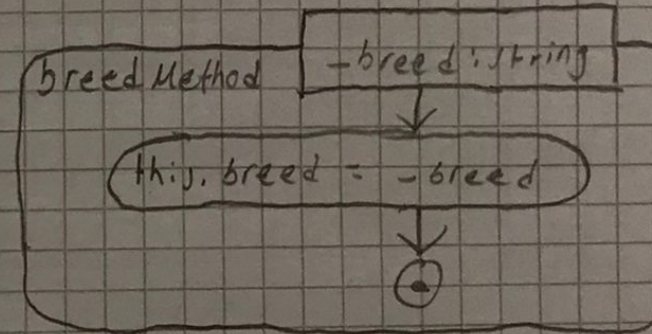 breed Method
-breed : string
this. breed = -breed